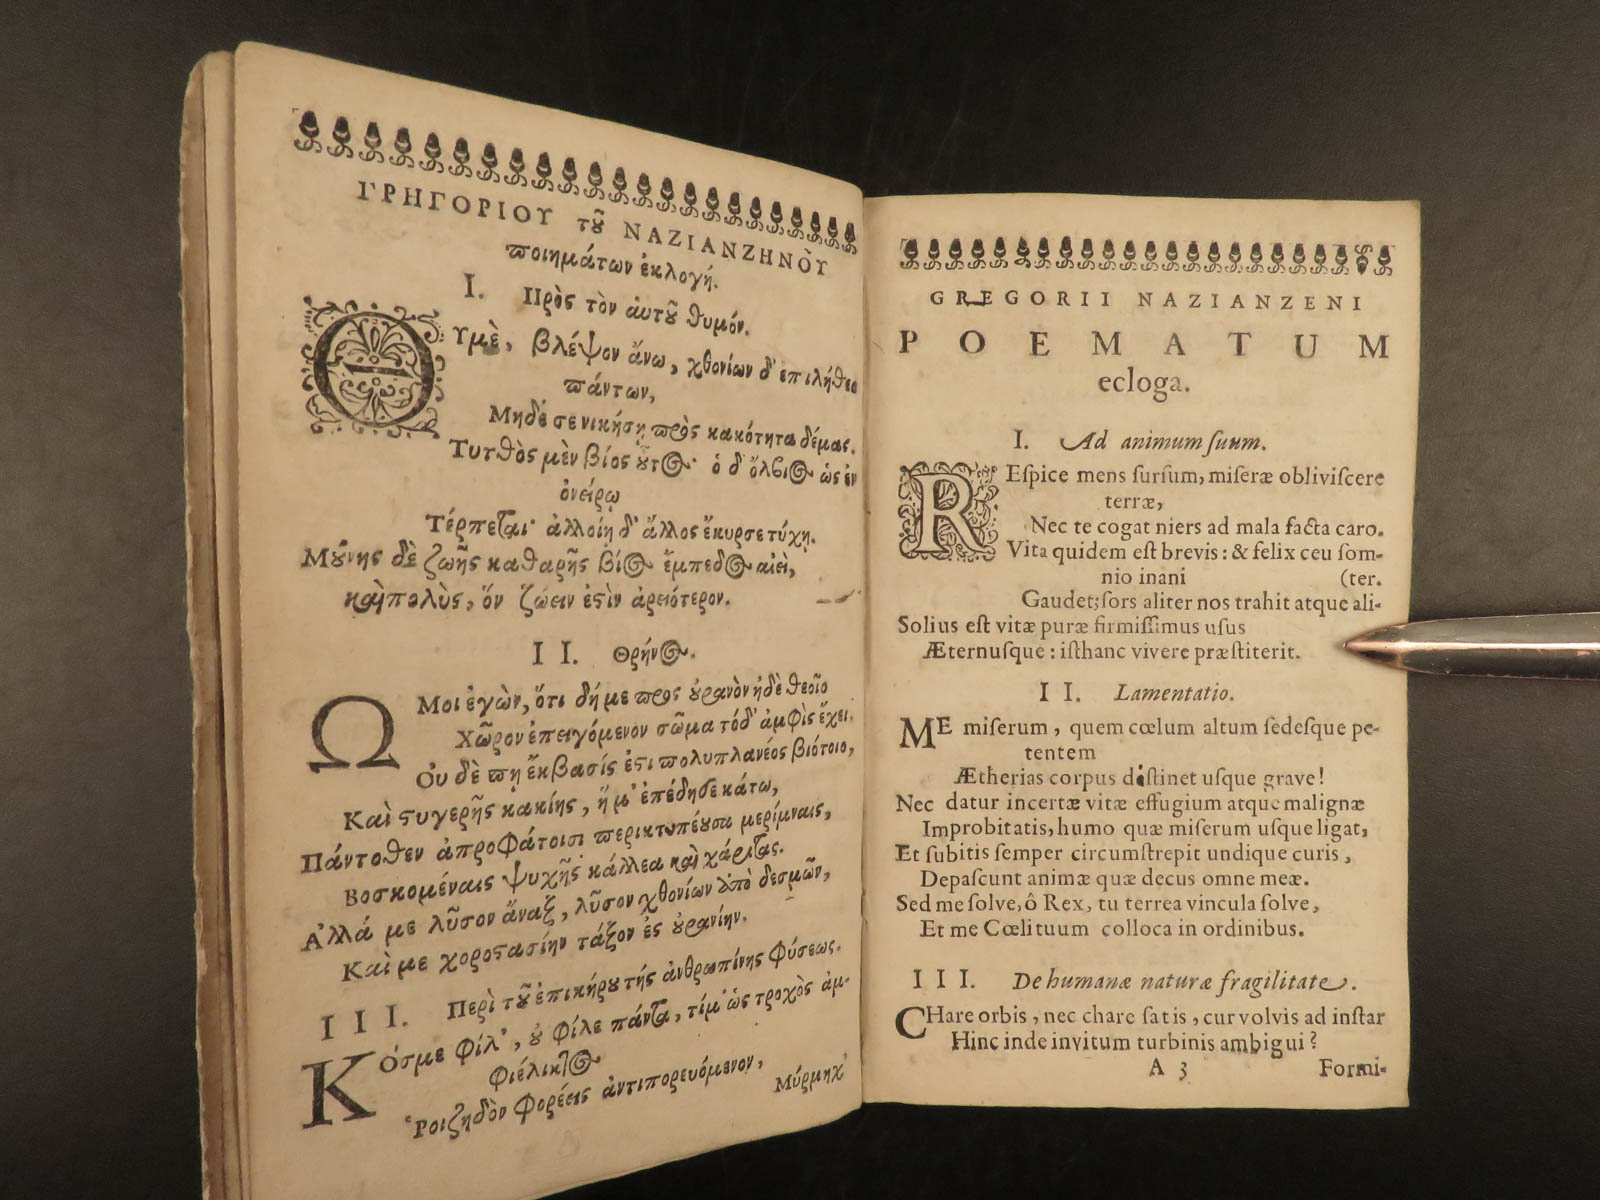 ΓΡΗΓΟΡΙΟΥ τȣ͂ ΝΑΖΙΑΝΖΗΝΟῦ
ποιημάτων ἐκλογή.
I. Πρὸς τὸν αὑτȣ͂ θυμόν.
ΘΥμὲ, βλέψον ἄνω, χθονίων δ' ἐπιλήθεο
πάντων,
Μηδέ σε νικήσῃ πρὸς κακότητα δέμας.
Τυτθὸς μὲν βίος ȣ̓͂τος· ὁ δ' ὄλβιος ὡς ἐν
ὀνείρῳ
Τέρπεται· ἀλλοίη δ' ἄλλος ἔκυρσε τύχῃ.
Μȣ́νης δὲ ζωῆς καθαρῆς βίος ἔμπεδος αἰεὶ,
καὶ πολὺς, ὃν ζώειν ἐςὶν ἀρειότερον.
II. Θρῆνος.
ΩΜοι ἐγὼν, ὅτι δή με πρὸς ȣ̓ρανὸν ἠδὲ θεοῖο
Χῶρον ἐπειγόμενον σῶμα τόδ' ἀμφὶς ἔχει.
Οὐδὲ πη ἔκβασίς ἐςι πολυπλανέος βιότοιο,
Καὶ ςυγερῆς κακίης, ἥ μ' ἐπέδησε κάτω,
Πάντοθεν ἀπροφάτοισι περικτυπέȣσα μερίμναις,
Βοσκομέναις ψυχῆς κάλλεα καὶ χάριτας.
Ἀλλά με λῦσον ἄναξ, λῦσον χθονίων ἀπὸ δεσμῶν,
Καί με χοροςασίην τάξον ἐς ȣ̓ρανίην.
III. Περὶ τȣ͂ ἐπικήρȣ τῆς ἀνθρωπίνης φύσεως.
ΚΌσμε φίλ', ȣ̓ φίλε πάντα, τίμ' ὡς τροχὸς ἀμ-
φιέλικτος
Ῥοιζηδὸν φορέεις ἀντιπορευόμενον,
Μύρμηκ'
GREGORII NAZIANZENI
POEMATUM
ecloga.
I. Ad animum ſuum.
REſpice mens ſurſum, miſeræ obliviſcere
terræ,
Nec te cogat niers ad mala facta caro.
Vita quidem eſt brevis: & felix ceu ſom-
nio inani (ter.
Gaudet; ſors aliter nos trahit atque ali-
Solius eſt vitæ puræ firmiſſimus uſus
Æternuſque: iſthanc vivere præſtiterit.
II. Lamentatio.
ME miſerum, quem cœlum altum ſedeſque pe-
tentem
Ætherias corpus diſtinet uſque grave!
Nec datur incertæ vitæ effugium atque malignæ
Improbitatis, humo quæ miſerum uſque ligat,
Et ſubitis ſemper circumſtrepit undique curis,
Depaſcunt animæ quæ decus omne meæ.
Sed me ſolve, ô Rex, tu terrea vincula ſolve,
Et me Cœlituum colloca in ordinibus.
III. De humanæ naturæ fragilitate.
CHare orbis, nec chare ſatis, cur volvis ad inſtar
Hinc inde invitum turbinis ambigui?
A 3 Formi-